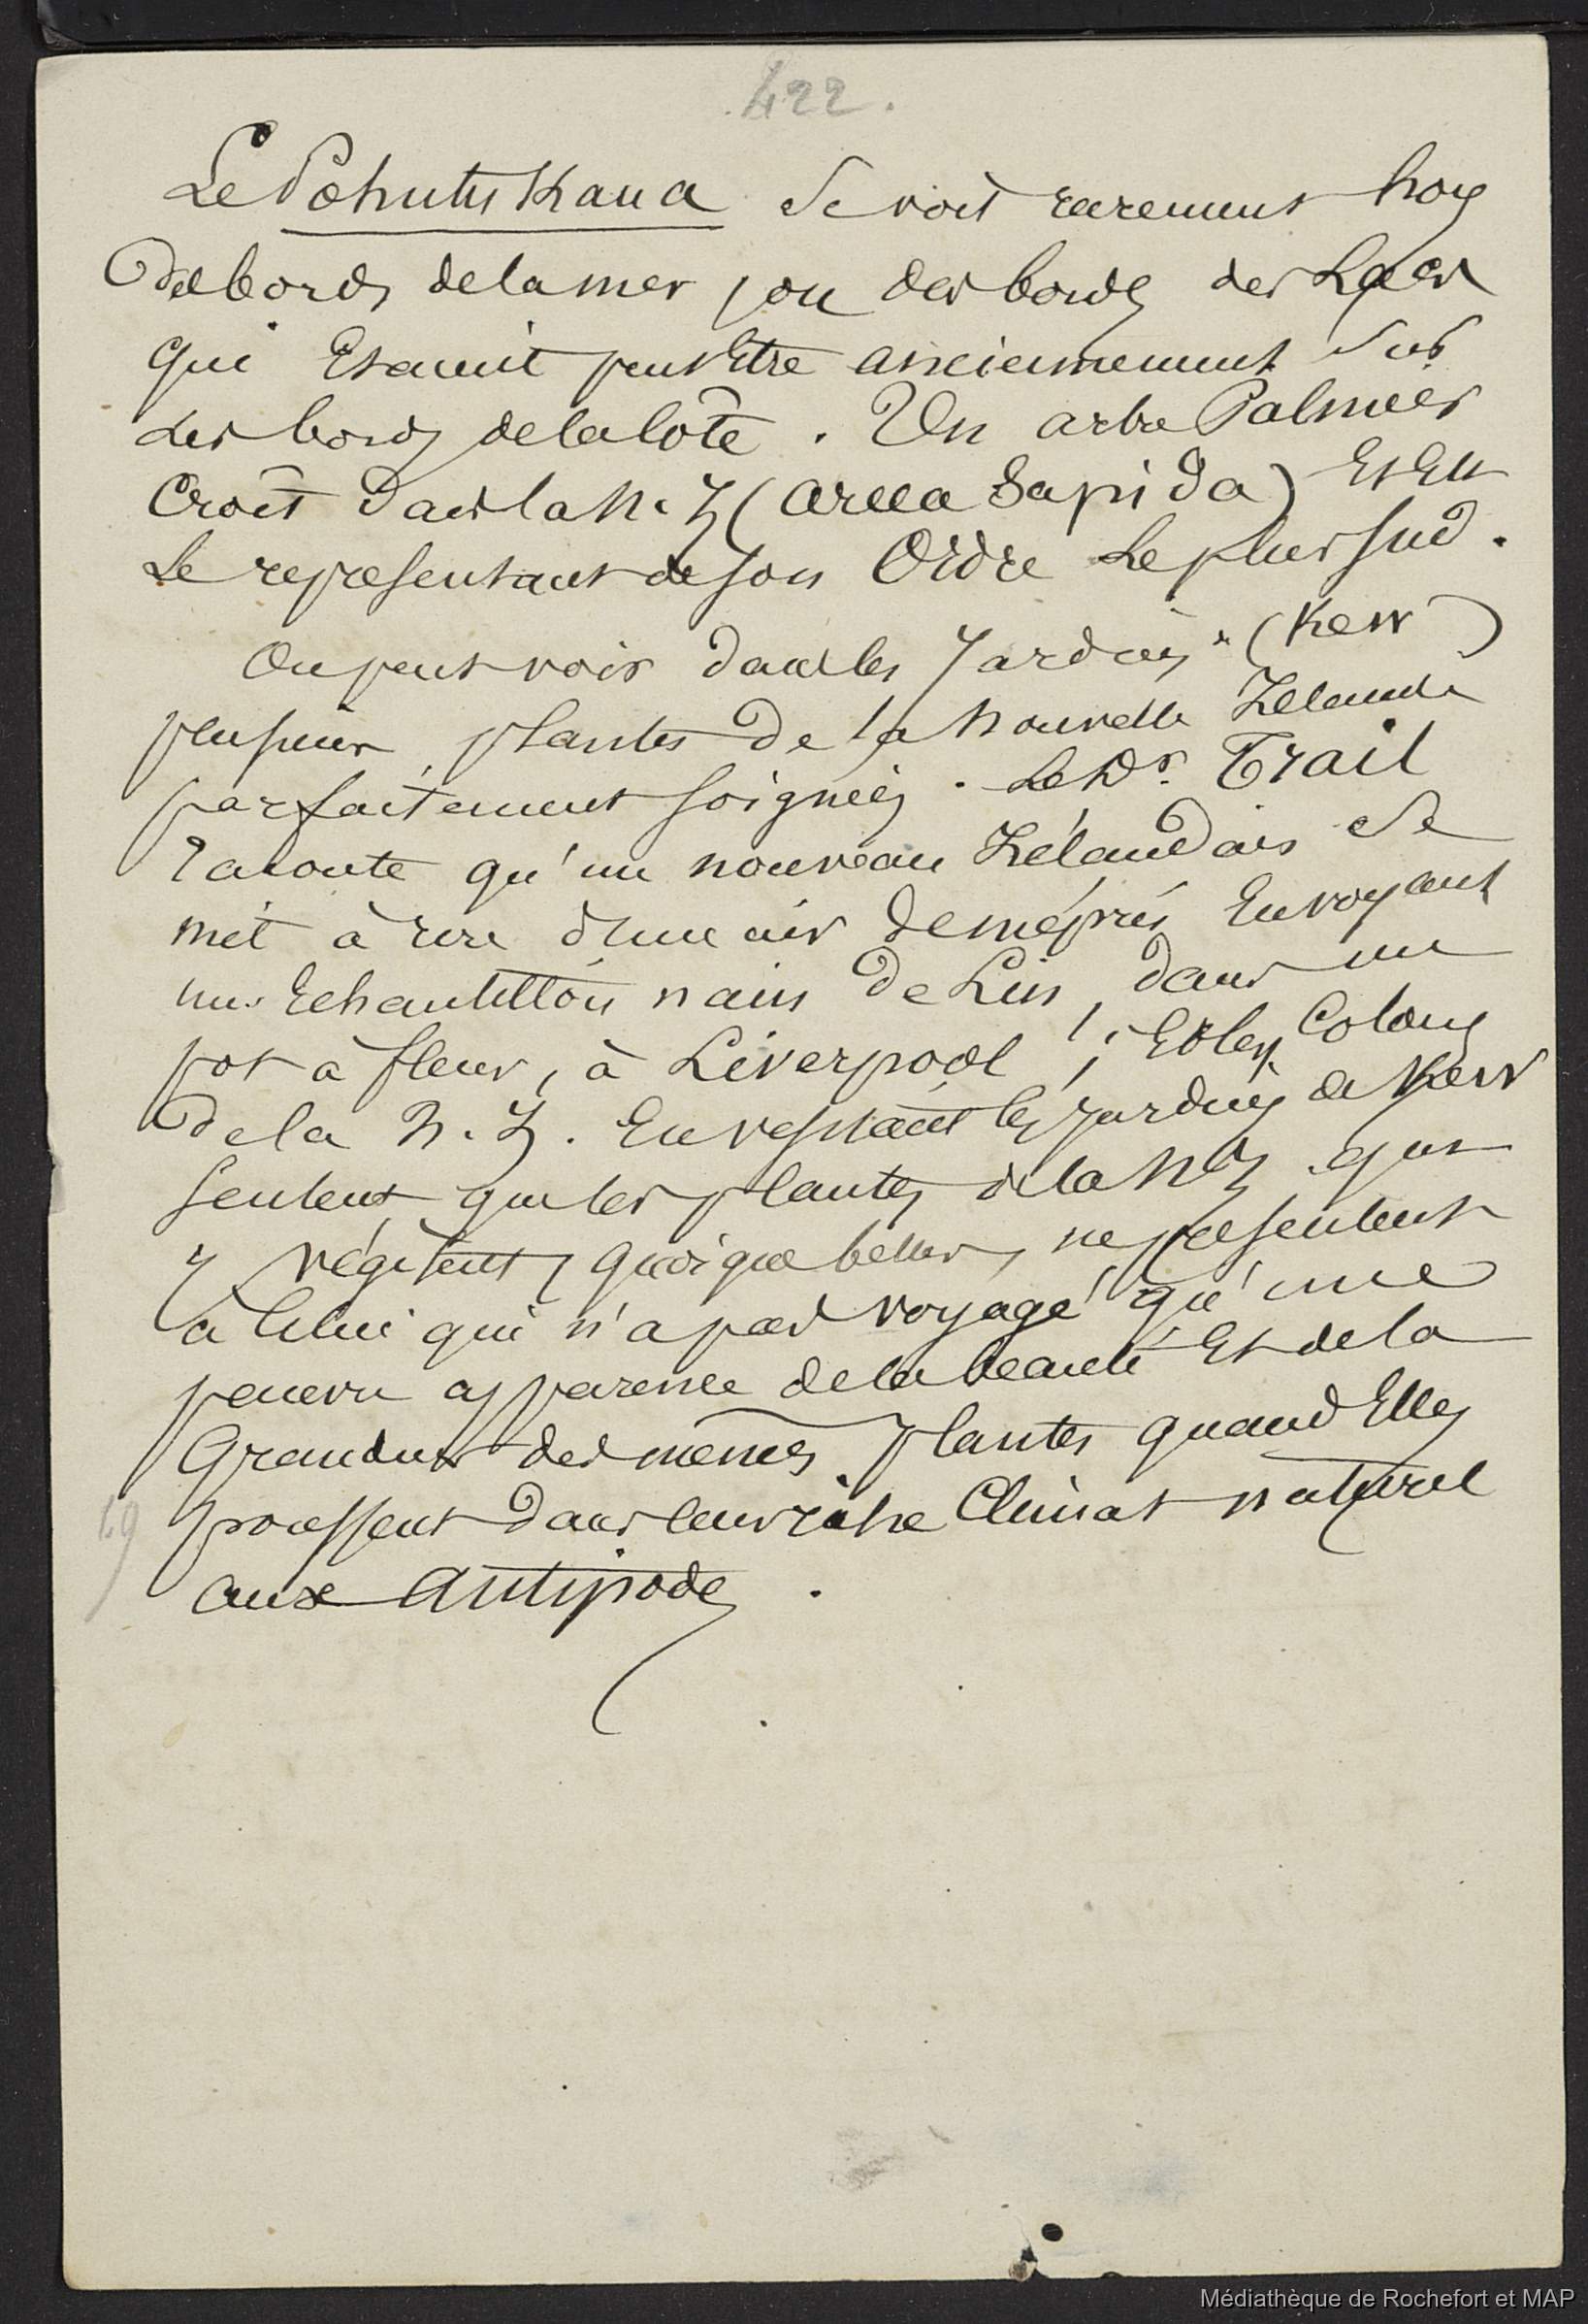 422.
Le Pohutukaua se voit rarement hors
des bords de la mer, ou des bords des Lacs
qui Etaient peut Etre anciennement sur
les bords de la côte. Un arbre Palmier
Croît dans la N. Z (areca Sapida) Et Est
Le representant de son Ordre Le plus sud.
On peut voir dans les Jardins (Kew)
plusieurs plantes de la Nouvelle Zelande
parfaitement soignées. Le Dr. Trail
raconte qu'un nouveau Zélandais se
mit à rire d'un air de mépris En voyant
un Echantillon nain de Lin, dans un
pot à fleur, à Liverpool ; Et les Colons
de la N. Z. En visitant les jardins de Kew
sentent que les plantes de la N Z qui
y végètent, quoique belles, ne présentent
à Celui qui n'a pas voyagé qu'une
pauvre apparence de la beauté Et de la
Grandeur des mêmes plantes quand Elles
poussent dans leur riche Climat naturel
aux Antipodes.
Médiathèque de Rochefort et MAP